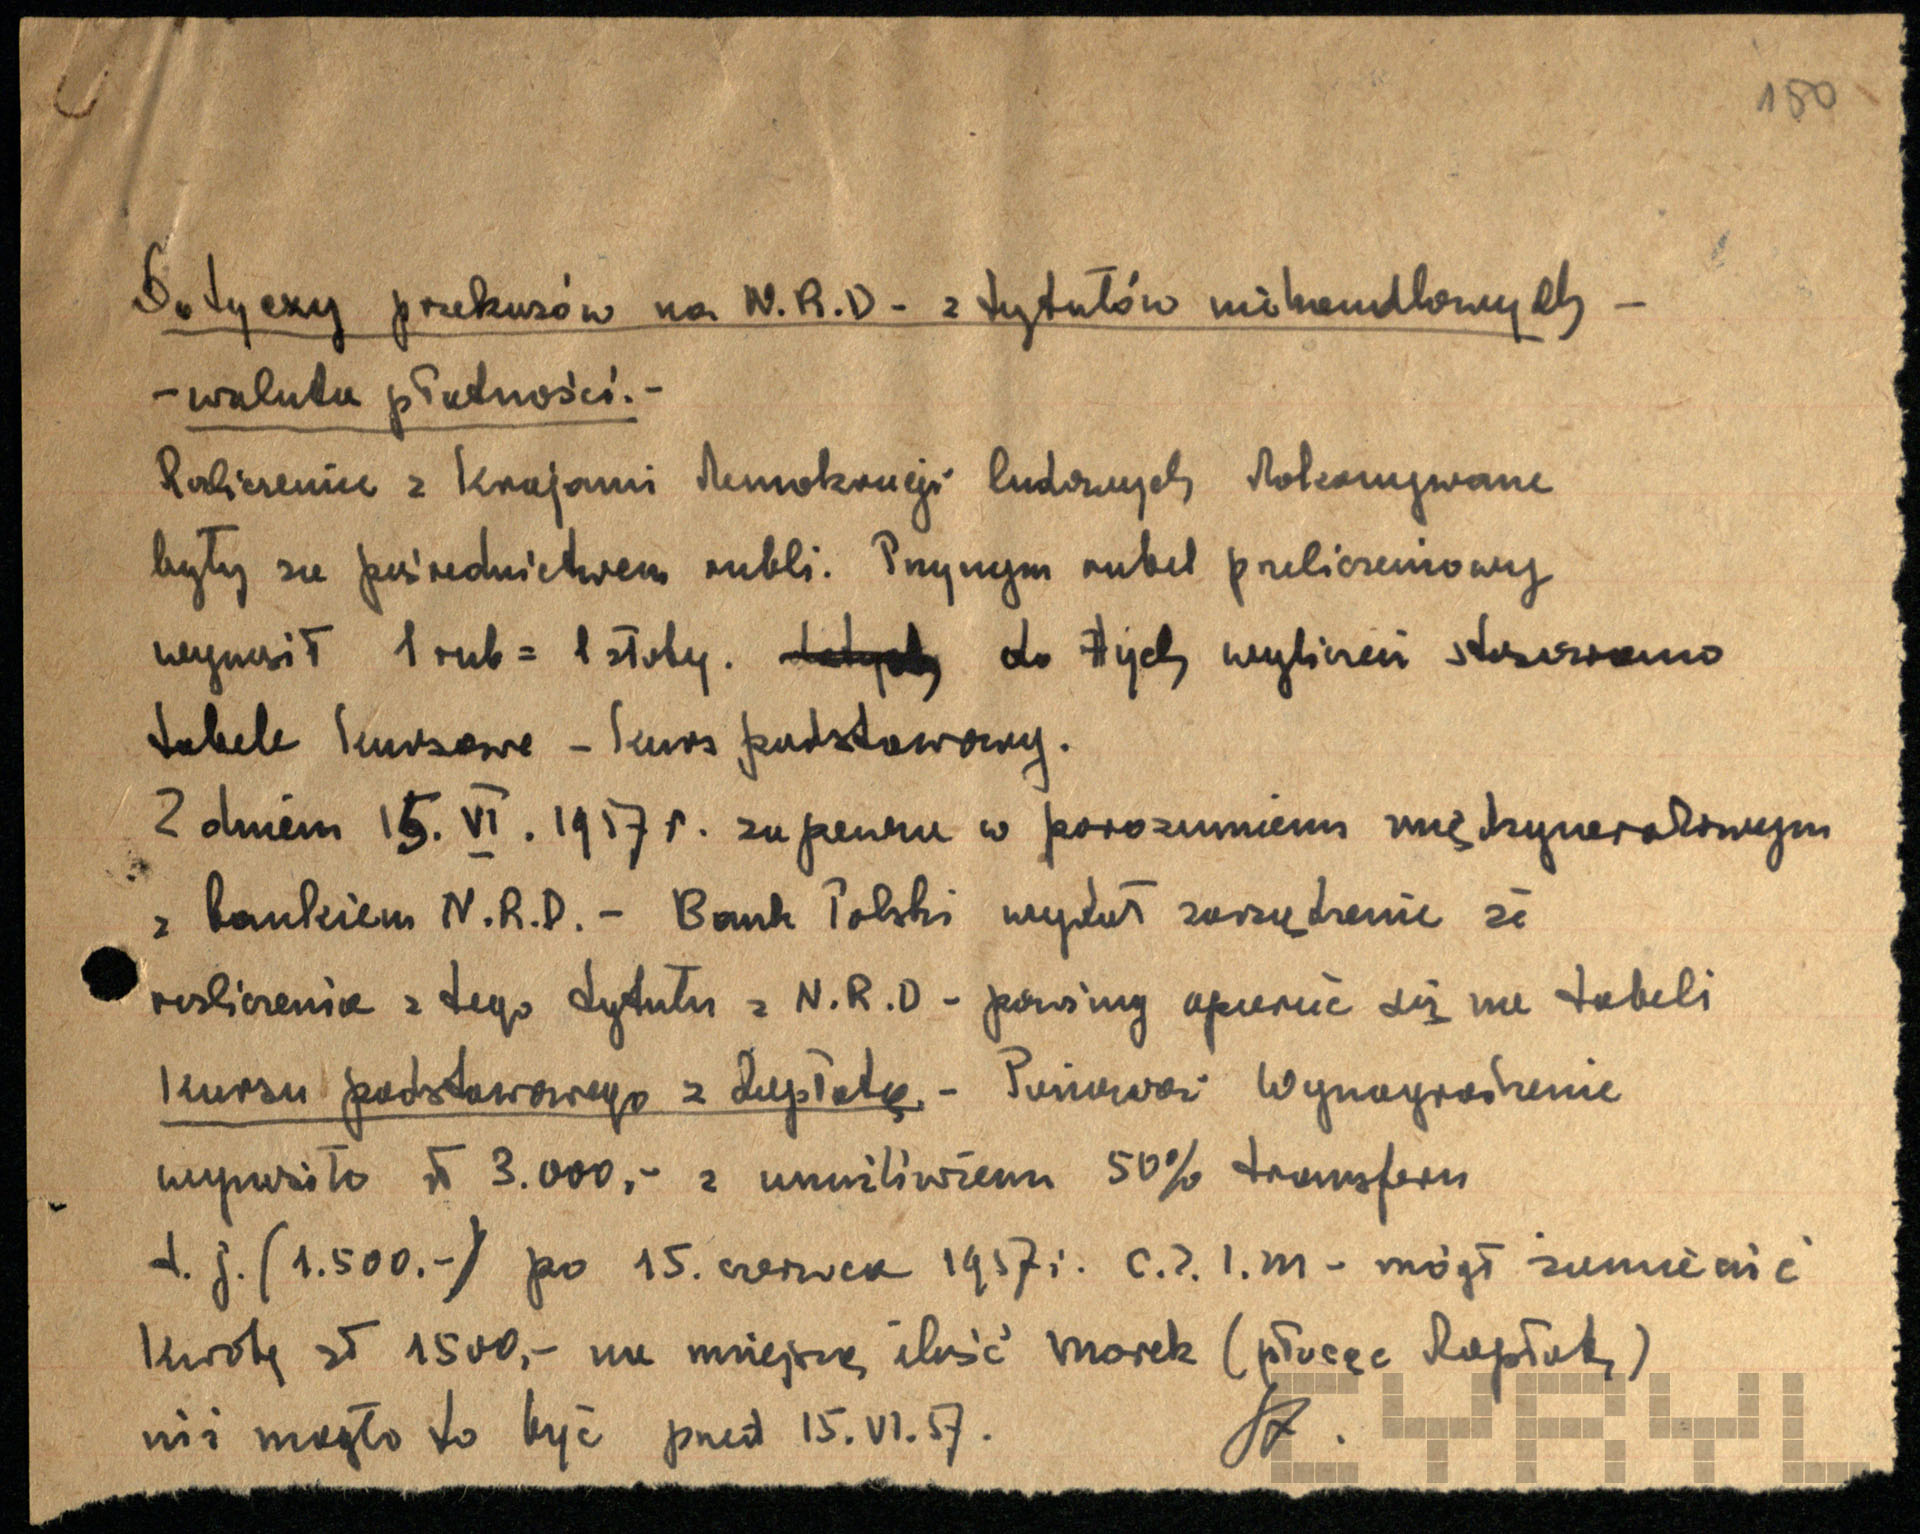 180
Dotyczy przekazów na N.R.D - z tytułów niehandlowych -
- waluta płatności. -
Rozliczenie z Krajami demokracji ludowych dokonywane
były za pośrednictwem rubli. Przyczym rubel przeliczeniowy
wynosił 1 rub = 1 złoty. do tych wyliczeń stosowano
tabele kursowe - kurs podstawowy.
Z dniem 15. VI. 1957 r. zapewne w porozumieniu międzynarodowym
z bankiem N.R.D. - Bank Polski wydał zarządzenie że
rozliczenia z tego tytułu z N.R.D - powinny opierać się na tabeli
kursu podstawowego z dopłatą. - Ponieważ Wynagrodzenie
wynosiło zł 3.000,- z umożliwieniem 50% transferu
t. j. (1.500.-) po 15. czerwca 1957 r. C.Z.I.M - mógł zamienić
kwotę zł 1500,- na mniejszą ilość marek (płacąc dopłatę)
niż mogło to być przed 15.VI.57.
CYRYL